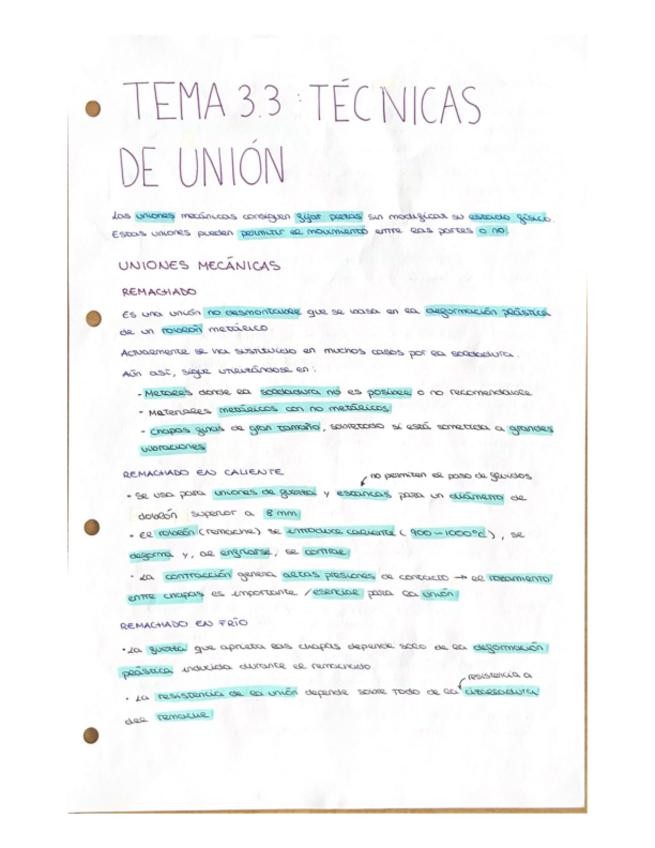 TEMA 3.3: TÉCNICAS
DE UNIÓN
Las uniones mecánicas consiguen fijar piezas sin modificar su estado físico.
Estas uniones pueden permitir el movimiento entre las partes o no.
UNIONES MECÁNICAS
REMACHADO
Es una unión no desmontable que se basa en la deformación plástica
de un roblón metálico.
Actualmente se ha sustituido en muchos casos por la soldadura.
Aún así, sigue utilizándose en:
- Metales donde la soldadura no es posible o no recomendable
- Materiales metálicos con no metálicos
- Chapas finas de gran tamaño, sobretodo si está sometida a grandes
vibraciones
REMACHADO EN CALIENTE
no permiten el paso de fluidos
· Se usa para uniones de fuerza y estancas para un diámetro de
doblón superior a 8 mm
· El roblón (remache) se introduce caliente (900-1000ºC), se
deforma y, al enfriarse, se contrae
· La contracción genera altas presiones de contacto → el rozamiento
entre chapas es importante /esencial para la unión
REMACHADO EN FRÍO
· La fuerza que aprieta las chapas depende solo de la deformación
plástica inducida durante el remachado
resistencia a
· La resistencia de la unión depende sobre todo de la cizalladura
del remache